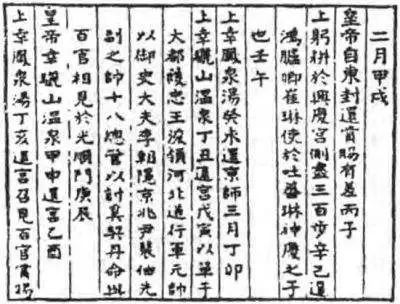 二月甲戌
皇帝自東封還賞賜有差丙子
上躬耕於興慶宮側盡三百步辛已遣
鴻臚卿崔琳使於吐蕃琳神慶之子
也壬午
上幸鳳泉湯癸未還京師三月丁卯
上幸驪山溫泉丁丑還宮戊寅以單于
大都護忠王浚領河北道行軍元帥
以御史大夫李朝隱京兆尹裴伷先
副之帥十八總管以討奚契丹命與
百官相見於光順門庚辰
皇帝幸驪山溫泉甲申還宮乙酉
上幸鳳泉湯丁亥還宮召見百官賞賜